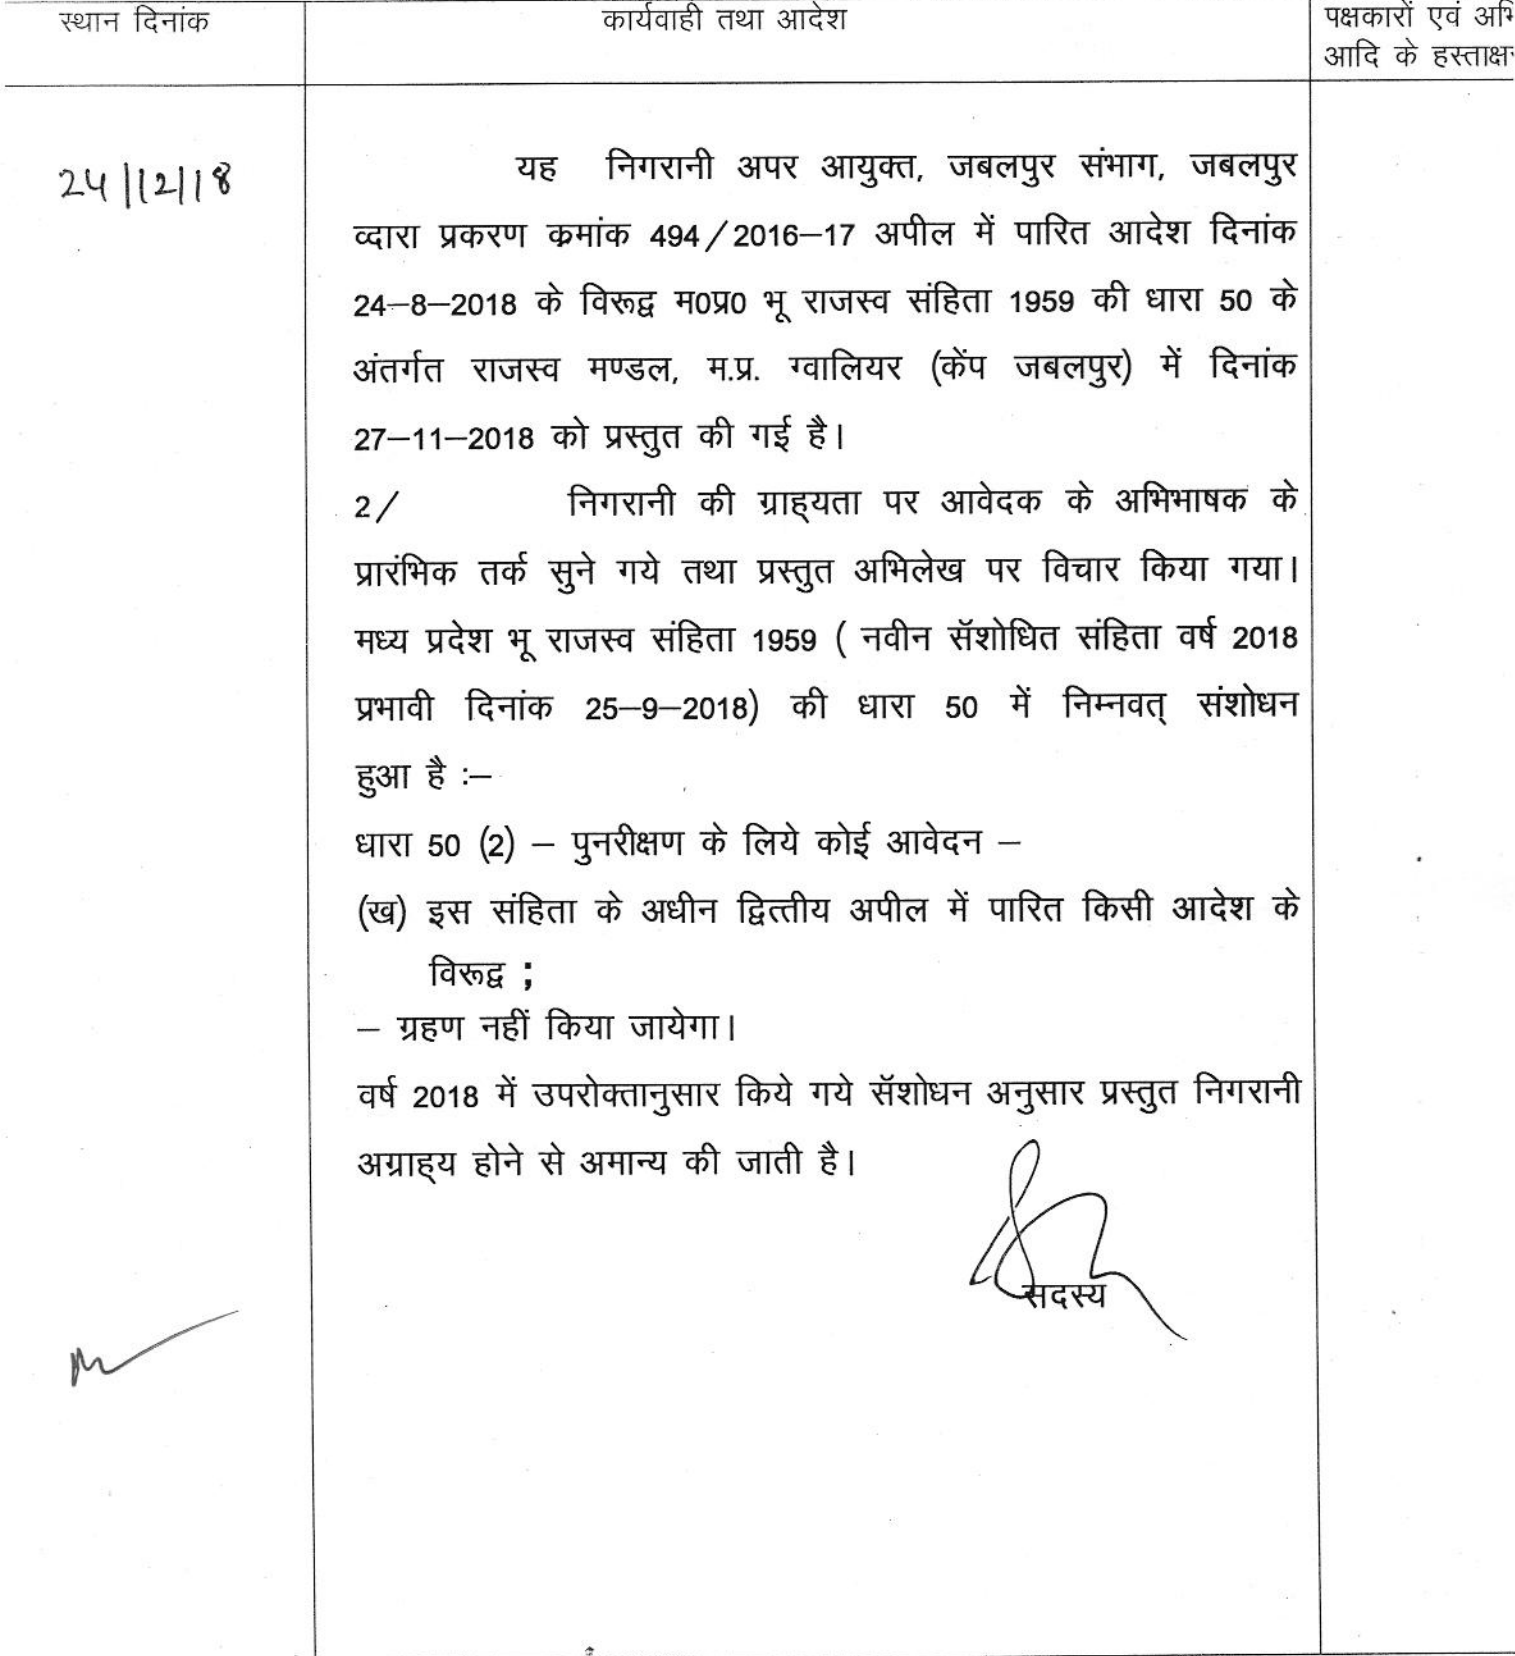 स्थान दिनांक
कार्यवाही तथा आदेश
पक्षकारों एवं अभि
आदि के हस्ताक्षर
24/12/18
यह निगरानी अपर आयुक्त, जबलपुर संभाग, जबलपुर
व्दारा प्रकरण कमांक 494/2016–17 अपील में पारित आदेश दिनांक
24–8–2018 के विरूद्व म0प्र0 भू राजस्व संहिता 1959 की धारा 50 के
अंतर्गत राजस्व मण्डल, म.प्र. ग्वालियर (केंप जबलपुर) में दिनांक
27–11–2018 को प्रस्तुत की गई है।
2/ निगरानी की ग्राह्यता पर आवेदक के अभिभाषक के
प्रारंभिक तर्क सुने गये तथा प्रस्तुत अभिलेख पर विचार किया गया।
मध्य प्रदेश भू राजस्व संहिता 1959 ( नवीन सॅशोधित संहिता वर्ष 2018
प्रभावी दिनांक 25–9–2018) की धारा 50 में निम्नवत् संशोधन
हुआ है :–
धारा 50 (2) – पुनरीक्षण के लिये कोई आवेदन –
(ख) इस संहिता के अधीन द्वित्तीय अपील में पारित किसी आदेश के
विरूद्व ;
– ग्रहण नहीं किया जायेगा।
वर्ष 2018 में उपरोक्तानुसार किये गये सॅशोधन अनुसार प्रस्तुत निगरानी
अग्राह्य होने से अमान्य की जाती है।
सदस्य